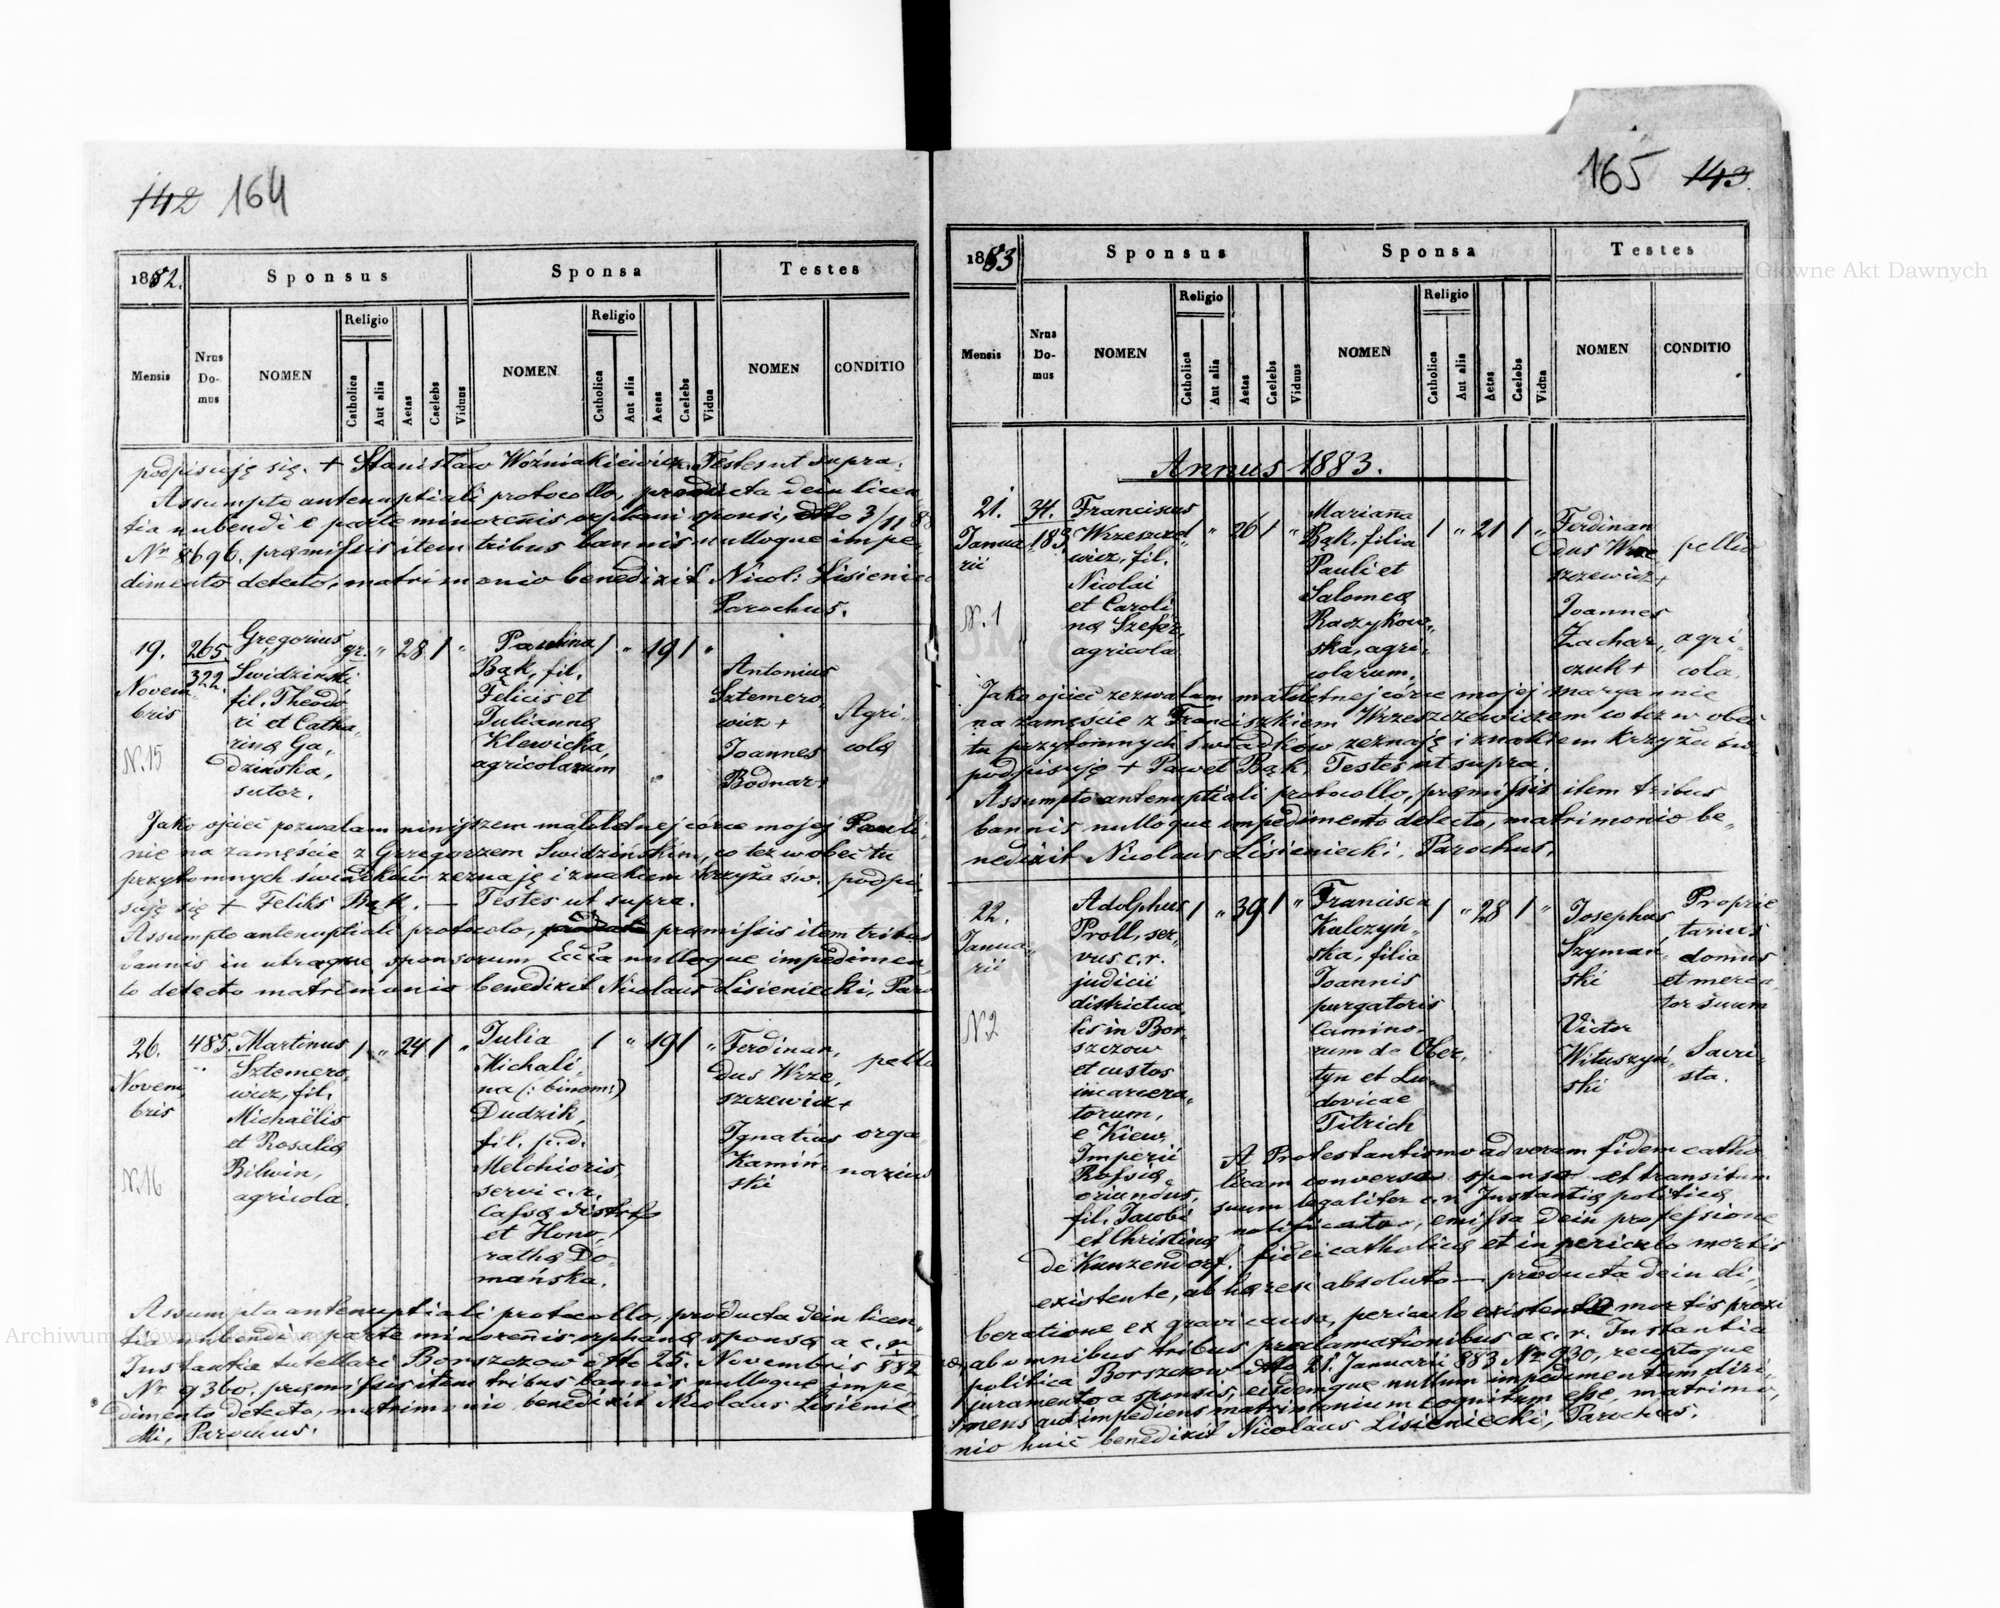 142 164
1882.
Sponsus
Sponsa
Testes
Mensis
Nrus Domus
NOMEN
Religio
Catholica
Aut alia
Aetas
Caelebs
Viduus
NOMEN
Religio
Catholica
Aut alia
Aetas
Caelebs
Vidua
NOMEN
CONDITIO
podpisuję się. + Stanisław Woźniakiewicz. Testes ut supra.
Assumpto antenuptiali protocollo, producta dein licen-
tia nubendi e parte minorenis orphani sponsi, ddto 3/11 88
Nr 8696. præmissis item tribus bannis nulloque impe-
dimento detecto, matrimonio benedixit Nicol: Lisieniec
Parochus.
19.
Novem
bris
N. 15
265.
322.
Gregorius
Swidziński
fil. Theodo
ri et Catha
rinæ Ga
dzińska,
sutor.
gr. " 28 1 "
Paulina
Bąk, fil.
Felicis et
Juliannæ
Klewicka,
agricolarum
1 " 19 1 "
Antonius
Sztemero
wicz +
Joannes
Bodnar +
Agri-
colæ
Jako ojciec pozwalam niniejszem małoletnej córce mojej Pauli-
nie na zamęście z Grzegorzem Swidzińskim, co też wobec tu
przytomnych świadków zeznaję i znakiem krzyża św. podpi-
suję się + Feliks Bąk. — Testes ut supra.
Assumpto antenuptiali protocolo, præmissis item tribus
bannis in utraque sponsorum Eccla nulloque impedimen
to detecto matrimonio benedixit Nicolaus Lisieniecki, Paro
26.
Novem
bris
N. 16
485.
Martinus
Sztemero
wicz, fil.
Michaëlis
et Rosaliæ
Bilwin,
agricola.
1 " 24 1 "
Julia
Michali,
na (: binom:)
Dudzik,
fil. p.d.
Melchioris,
servi c. r.
Cassæ distr
et Hono,
rathæ Do-
mańska.
1 " 19 1 "
Ferdinan,
dus Wrze,
szczewicz +
Ignatius
Kamiń
ski
pello
orga
narius
Assumpto antenuptiali protocollo, producta dein licen-
tia nubendi e parte minorenis, orphanæ sponsæ a c. r.
Instantia tutellari Borszczow ddto 25. Novembris 882
Nr 9360. præmissis item tribus bannis nulloque impe,
dimento detecto, matrimonio benedixit Nicolaus Lisieniec
ki, Parochus.
165 143
1883
Sponsus
Sponsa
Testes
Mensis
Nrus Domus
NOMEN
Religio
Catholica
Aut alia
Aetas
Caelebs
Viduus
NOMEN
Religio
Catholica
Aut alia
Aetas
Caelebs
Vidua
NOMEN
CONDITIO
Annus 1883.
21.
Janua
rii
N. 1
34.
183
Franciscus
Wrzeszcze
wicz, fil.
Nicolai
et Caroli
næ Szefer,
agricola
1 " 26 1 "
Mariana
Bąk, filia
Pauli et
Salomeæ
Raczykow-
ska, agri-
colarum.
1 " 21 1 "
Ferdinan
dus Wrze
szczewicz +
Joannes
Zachar,
czuk +
pellio
agri-
cola.
Jako ojciec zezwalam małoletnej córce mojej Maryannie
na zamęście z Franciszkiem Wrzeszczewiczem co też w obec
tu przytomnych świadków zeznaję i znakiem krzyża św.
podpisuję + Paweł Bąk. Testes ut supra.
Assumpto antenuptiali protocollo, præmissis item tribus
bannis nulloque impedimento detecto, matrimonio be,
nedixit Nicolaus Lisieniecki, Parochus.
22.
Janua
rii
N 2
Adolphus
Proll, ser-
vus c. r.
judicii
districtua
lis in Bor
szczow
et custos
incarcera,
torum,
e Kiew
Imperii
Rossiæ
oriundus,
fil. Jacobi
et Christinæ
de Kunzendorf.
1 " 39 1 "
Francisca
Kulczyń-
ska, filia
Joannis
purgatoris
camino-
rum de Ober,
tyn et Lu
dovicae
Titrich
1 " 28 1 "
Josephus
Szymań,
ski
Victor
Wituszyń
ski
Proprie
tarius
domus
et merca
tor suum
Sacri-
sta.
A Protestantismo ad veram fidem catho
licam converso sponso et transitum
suum legaliter c. r. Instantiæ politicæ
notificato, emissa dein professione
fidei catholicæ et in periculo mortis
existente, ab hæresi absoluto — producta dein eli,
beratione ex gravi causa, periculo existente mortis proxi
ab omnibus tribus proclamationibus a c. r. Instantia
politica Borszczow ddto 21. Januarii 883 Nr 930, receptoque
juramento a sponsis, eisdemque nullum impedimentum diri,
mens aut impediens matrimonium cognitum esse, matrimo,
nio huic benedixit Nicolaus Lisieniecki, Parochus.
Archiwum Główne Akt Dawnych
Archiwum Główne Akt Dawnych